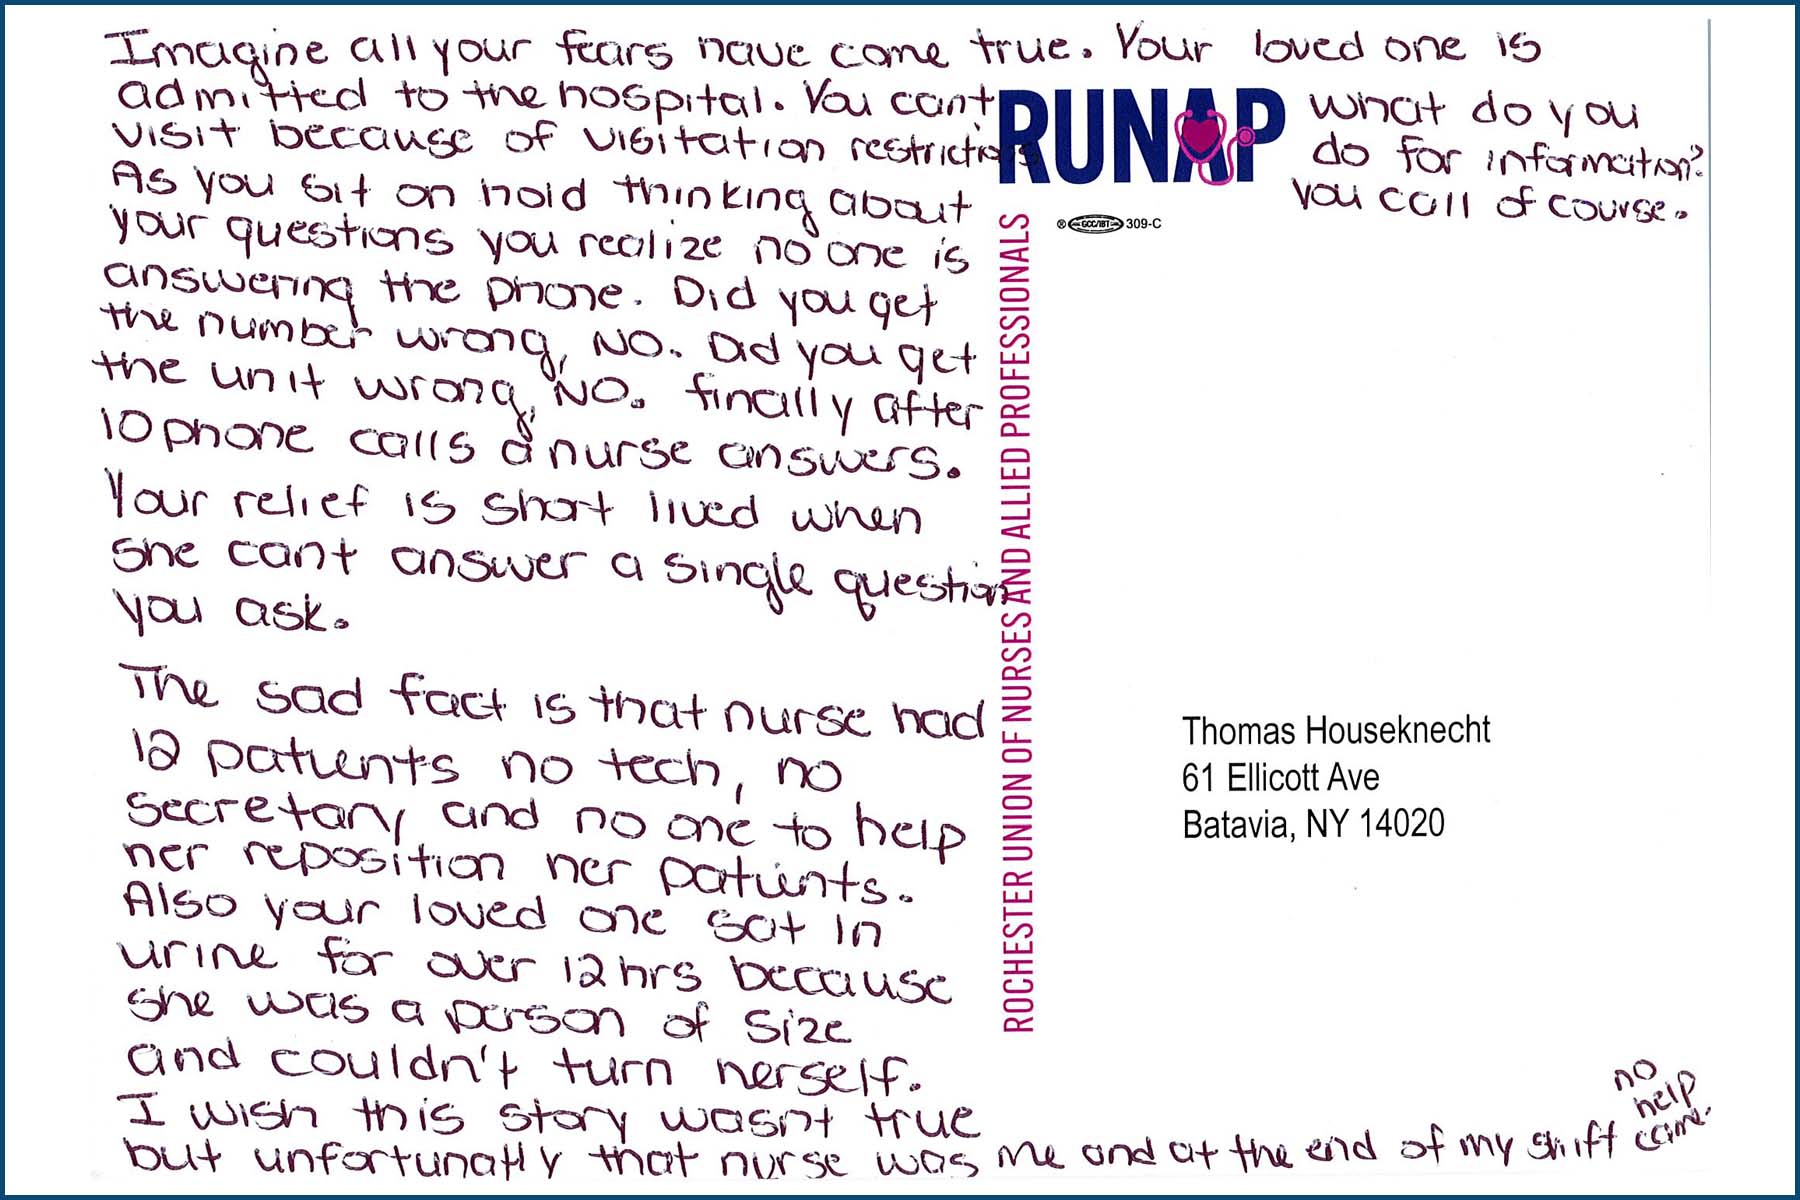 Imagine all your fears have come true. Your loved one is
admitted to the hospital. You cant
visit because of visitation restrictions
What do you
do for information?
You call of course.
As you sit on hold thinking about
your questions you realize no one is
answering the phone. Did you get
the number wrong, NO. Did you get
the unit wrong, NO. finally after
10 phone calls a nurse answers.
Your relief is short lived when
she cant answer a single question
you ask.
The sad fact is that nurse had
12 patients no tech, no
secretary and no one to help
her reposition her patients.
Also your loved one sat in
urine for over 12 hrs because
she was a person of size
and couldn't turn herself.
I wish this story wasnt true
but unfortunatly that nurse was me and at the end of my shift
no
help
came.
RUNAP
® GCC/IBT 309-C
ROCHESTER UNION OF NURSES AND ALLIED PROFESSIONALS
Thomas Houseknecht
61 Ellicott Ave
Batavia, NY 14020